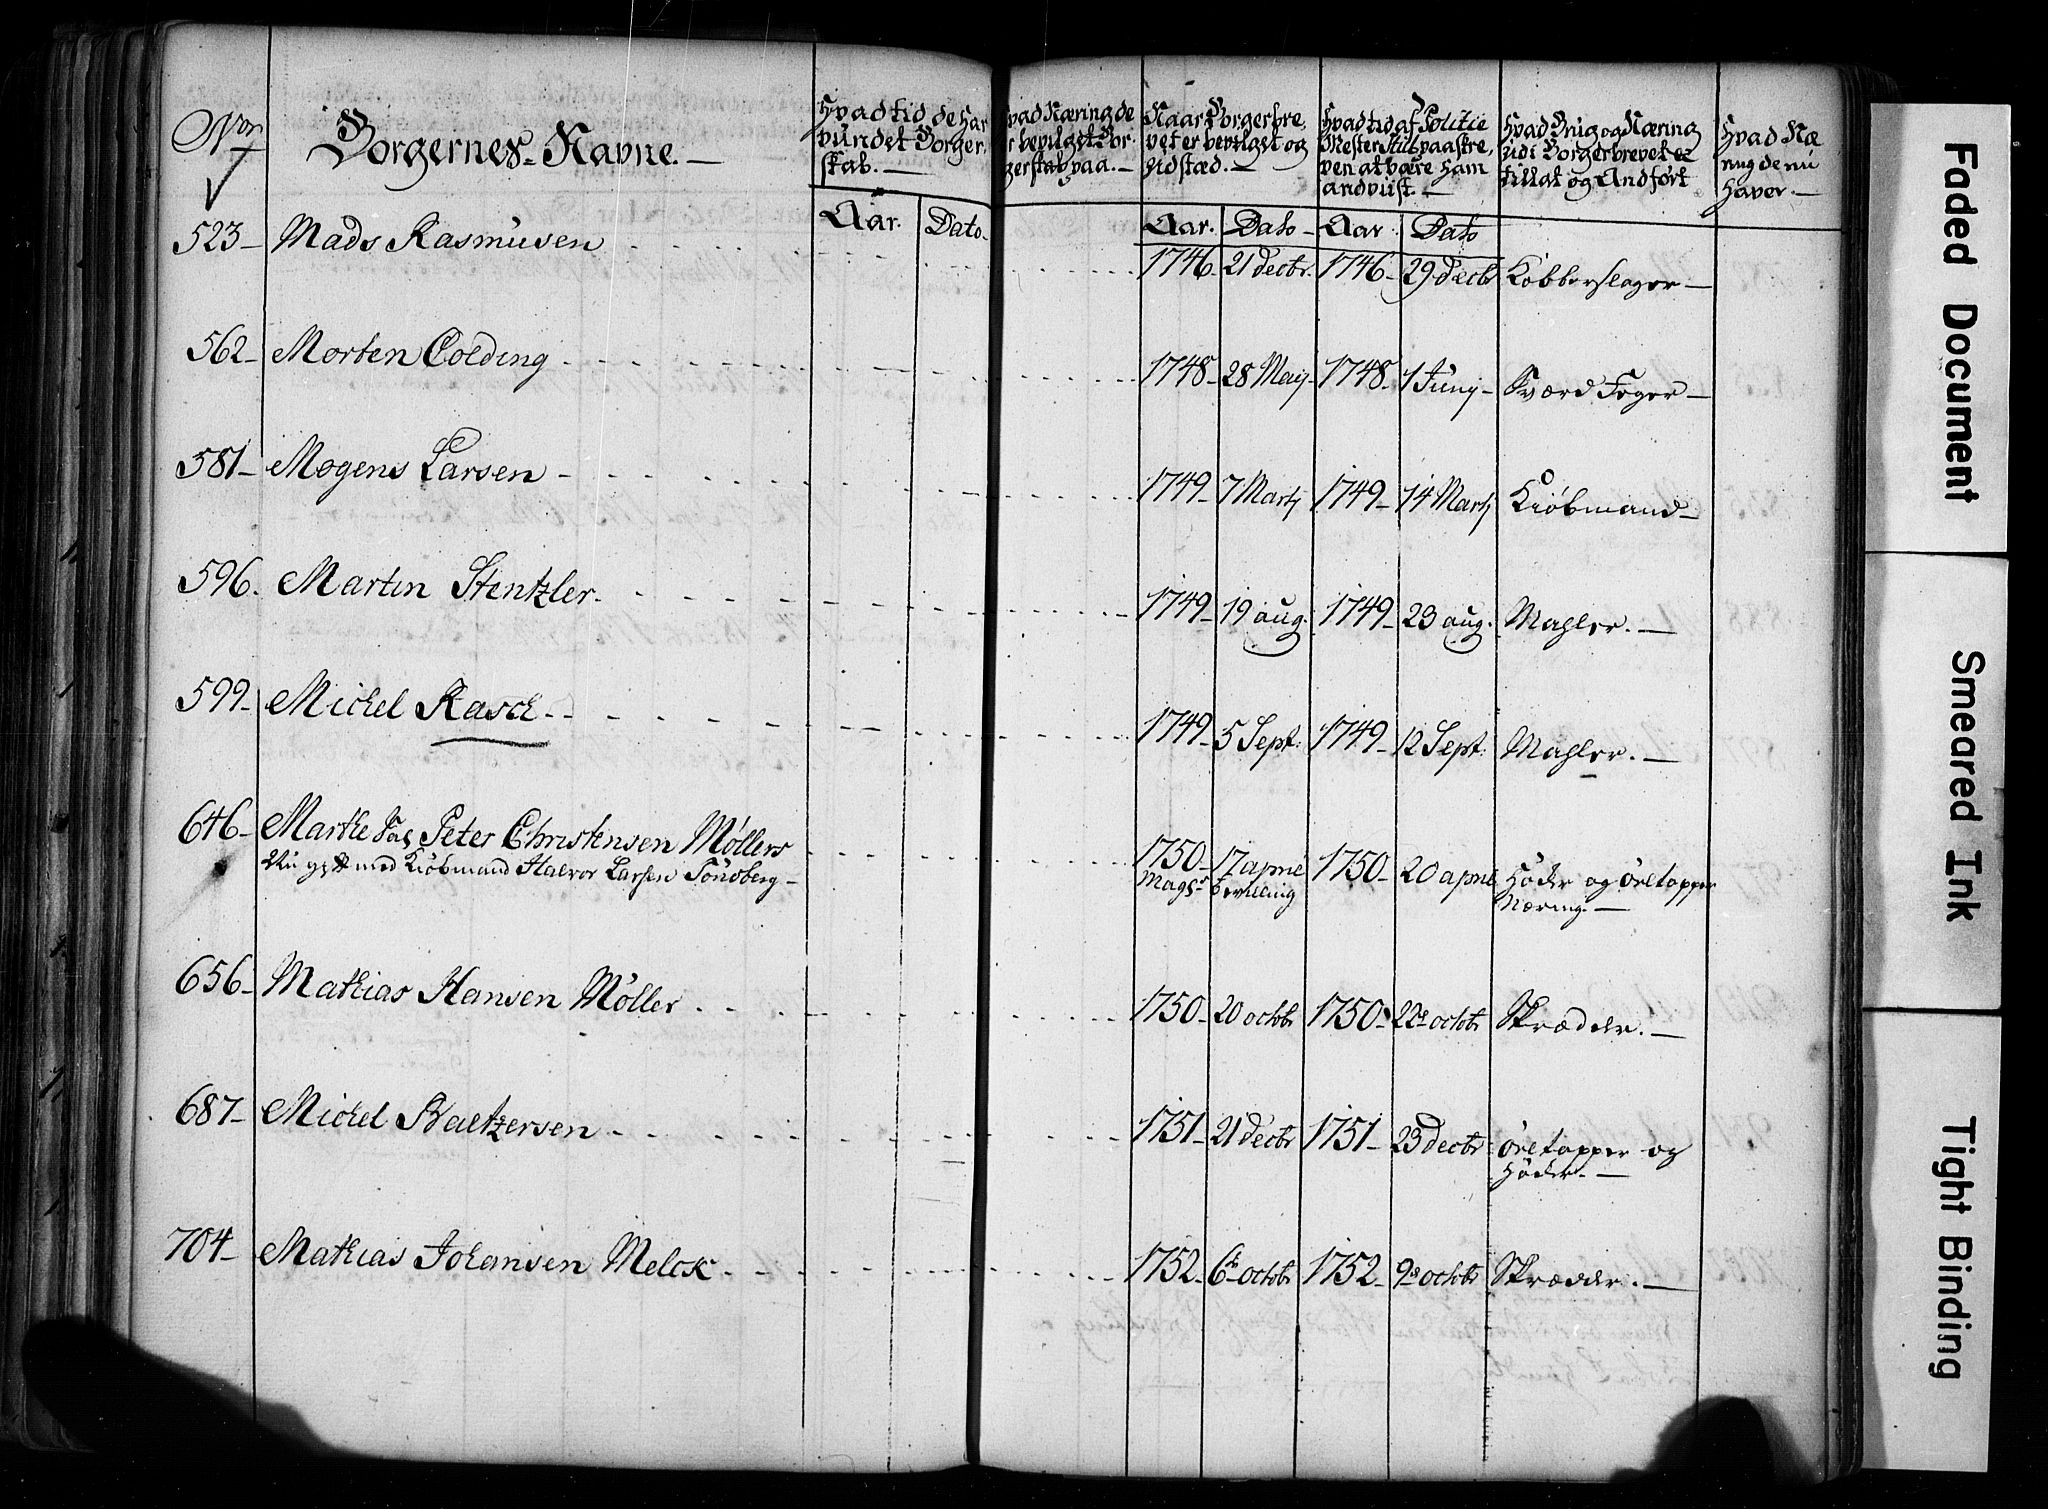 Nor
Borgernes Navne. —
Hvad tid de har
vundet Borger
skab. —
Hvad Næring de
er bevilget Bor
gerskab paa. —
Naar Borgerbre,
vet er bevilget og
udstæd. —
Hvad tid af Politie
Mester paaskre,
ven at være ham
andviist. —
Hvad Brug og Næring
udi Borgerbrevet er
tillat og Andført
Hvad Næ
ring de nu
haver. —
Aar. Dato. Aar. Dato Aar Dato
523 Mads Rasmusen 1746 21 Decbr. 1746 29 Decb Kobberslager
562 Morten Colding 1748 28 Maij 1748 1 Junj Sværd Feger
581 Mogens Larsen 1749 7 Martj 1749 14 Martj Kiøbmand
596. Martin Stentzler. 1749 19 aug. 1749 23 aug. Mahler.
599 Michel Rasch 1749 5 Sept: 1749 12 Sept: Mahler.
646 Marthe Sal Peter Christensen Møllers 1750 17 april 1750 20 april Høker og Øltapper
Nu gift med Kiøbmand Halvor Larsen Tønsberg Magst bevilling Næring.
656 Mathias Hansen Møller 1750 20 octobr 1750 22 octobr Skrædder.
687 Michel Baltzersen 1751 21 Decbr 1751 23 Decbr Øltapper og
Høker.
704 Mathias Johansen Melck 1752 6te octobr 1752 9de octobr Skrædder.
Faded Document
Smeared Ink
Tight Binding